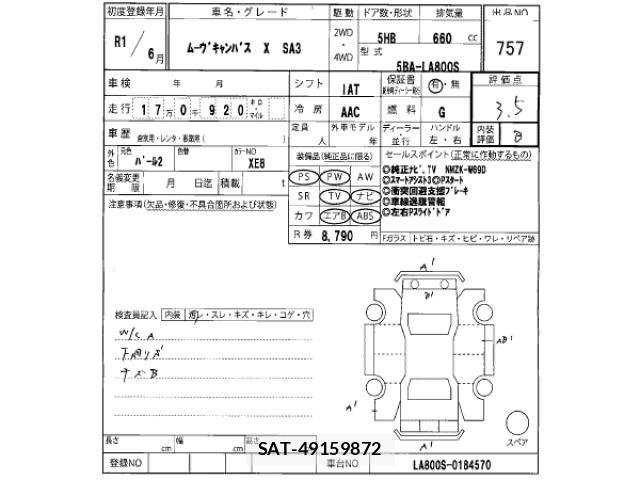 初度登録年月
車名・グレード
駆動
ドア数・形状
排気量
出品NO
R1/6月
ムーヴキャンバス X SA3
2WD・4WD
5HB
660 cc
757
型式
5BA-LA800S
車検 年 月
シフト
IAT
保証書
有・無
評価点
走行
17万0千920
キロ・マイル
冷房
AAC
燃料
G
3.5
車歴
自家用・レンタ・事業用( )
定員 人
外車モデル 年
ディーラー・並行
ハンドル 左・右
内装評価
B
外色
元色
パール2
色替
カラーNO
XE8
装備品(純正品に限る)
セールスポイント(正常に作動するもの)
名義変更期限
月 日迄
積載 t
PS PW AW
SR TV ナビ
カワ エアB ABS
R券 8,790 円
◎純正ナビ.TV NMZK-W69D
◎スマートアシスト3◎Pスタート
◎衝突回避支援ブレーキ
◎車線逸脱警報
◎左右Pスライドドア
注意事項(欠品・修復・不具合箇所および状態)
Fガラス
トビ石・キズ・ヒビ・ワレ・リペア跡
A1
B1
検査員記入
内装
汚レ・スレ・キズ・キレ・コゲ・穴
W/C A
下廻リサビ
キズB
AB1
A1
A1
スペア
長さ cm
幅 cm
高さ
SAT-49159872
登録NO
車台NO
LA800S-0184570